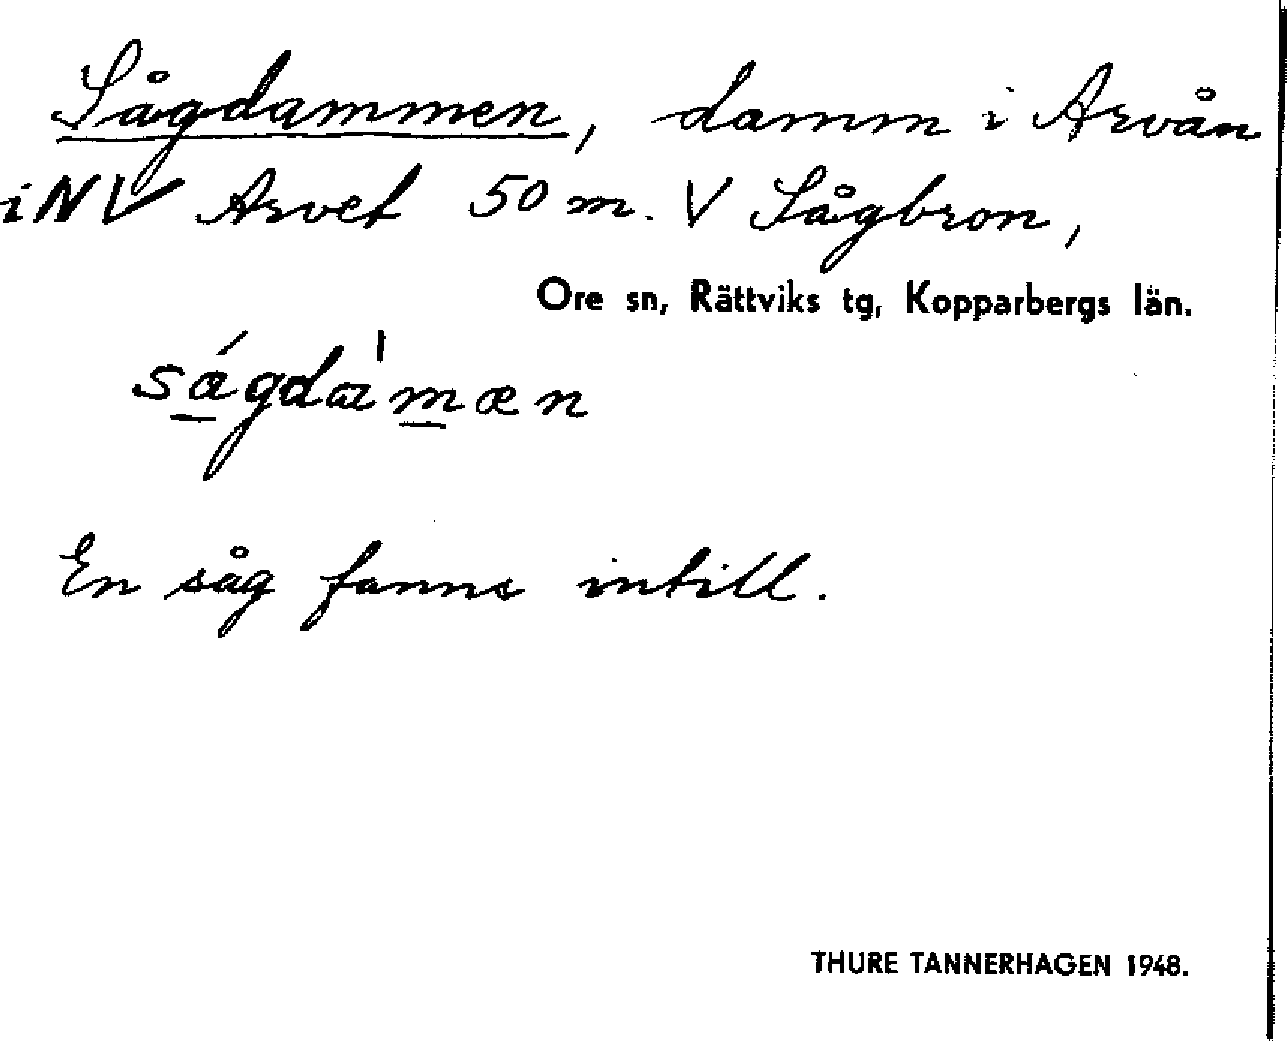 Sågdammen, damm i Arvån
i NV Arvet 50 m. V Sågbron,
Ore sn, Rättviks tg, Kopparbergs län.
En såg fanns intill.
THURE TANNERHAGEN 1948.